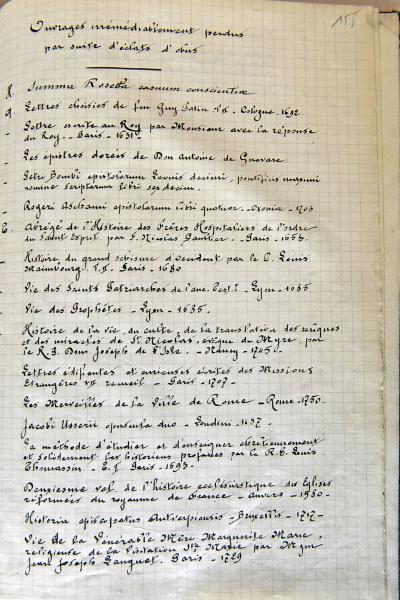 155
Ouvrages irrémédiablement perdus
par suite d'éclats d'obus
Summa Rosella casuum conscientiæ
Lettres choisies de feu Guy Patin T.1. Cologne. 1692
Lettre escrite au Roy par Monsieur avec la réponse
du Roy. - Paris - 1631
Les epistres dorées de Don Antoine de Guevare
Petri Bembi epistolarum Leonis decimi, pontificis maximi
nomine scriptarum libri sexdecim.
Rogeri Aschami epistolarum libri quatuor. Oxoniæ - 1703
Abrégé de l'Histoire des Frères Hospitaliers de l'ordre
du Saint Esprit par F. Nicolas Gaultier. - Paris - 1653.
Histoire du grand schisme d'Occident par le P. Louis
Maimbourg S.J. Paris - 1680
Vie des Saints Patriarches de l'anc. Test. - Lyon - 1685
Vie des Prophètes - Lyon - 1685.
Histoire de la vie, du culte, de la translation des reliques
et des miracles de St Nicolas, évêque de Myre, par
le R.P. Dom Joseph de l'Isle. - Nancy - 1745.
Lettres édifiantes et curieuses écrites des Missions
Etrangères recueil - Paris - 1707 -
Les Merveilles de la Ville de Rome - Rome - 1750.
Jacobi Usserii opuscula duo - Londini - 1687.
La méthode d'étudier et d'enseigner chrétiennement
et solidement les historiens profanes par le R.P. Louis
Thomassin - Paris - 1693.
Deuxiesme vol. de l'histoire ecclésiastique des Eglises
réformées du royaume de France - Anvers - 1580 -
Historia episcopatus Antverpiensis - Bruxellis - 1717 -
Vie de la Vénérable Mère Marguerite Marie,
religieuse de la Visitation Ste Marie par Mgr
Jean Joseph Languet. Paris - 1729